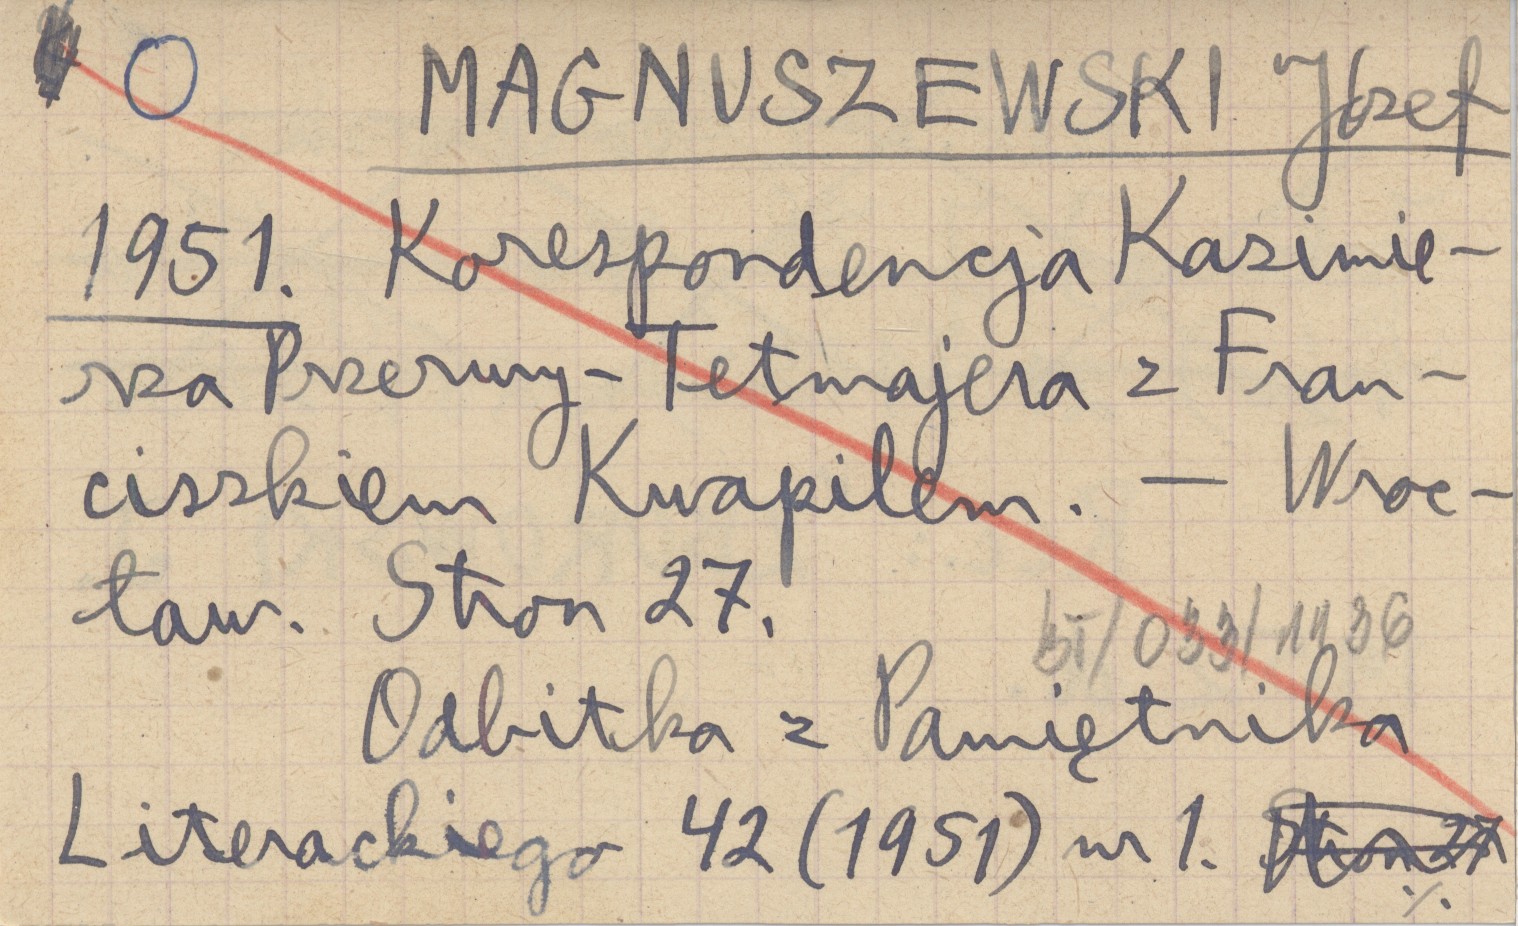 O MAGNUSZEWSKI Józef
1951. Korespondencja Kazimie-
rza Przerwy-Tetmajera z Fran-
ciszkiem Kvapilem. — Wroc-
ław. Stron 27.
Odbitka z Pamiętnika
Literackiego 42 (1951) nr 1. Stron 27
./.